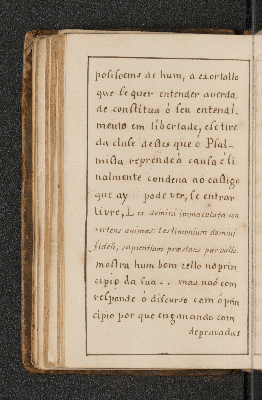 posisoens de hum, a exortallo
que se quer entender averda
de constitua o seu entendi
mento em libertade, e se tire
da clase destes que o Psal
mista reprende a causa e fi
nalmente condena ao castigo
que ay pode ver, se entrar
livre, Lex domini immaculata con
vertens animas: testimonium domini
fidele, sapientiam præstans parvulis.
mostra hum bom zello no prin
cipio da sua .. mas naõ com
responde ò discurso com ó prin
cipio por que enganando com
depravadas